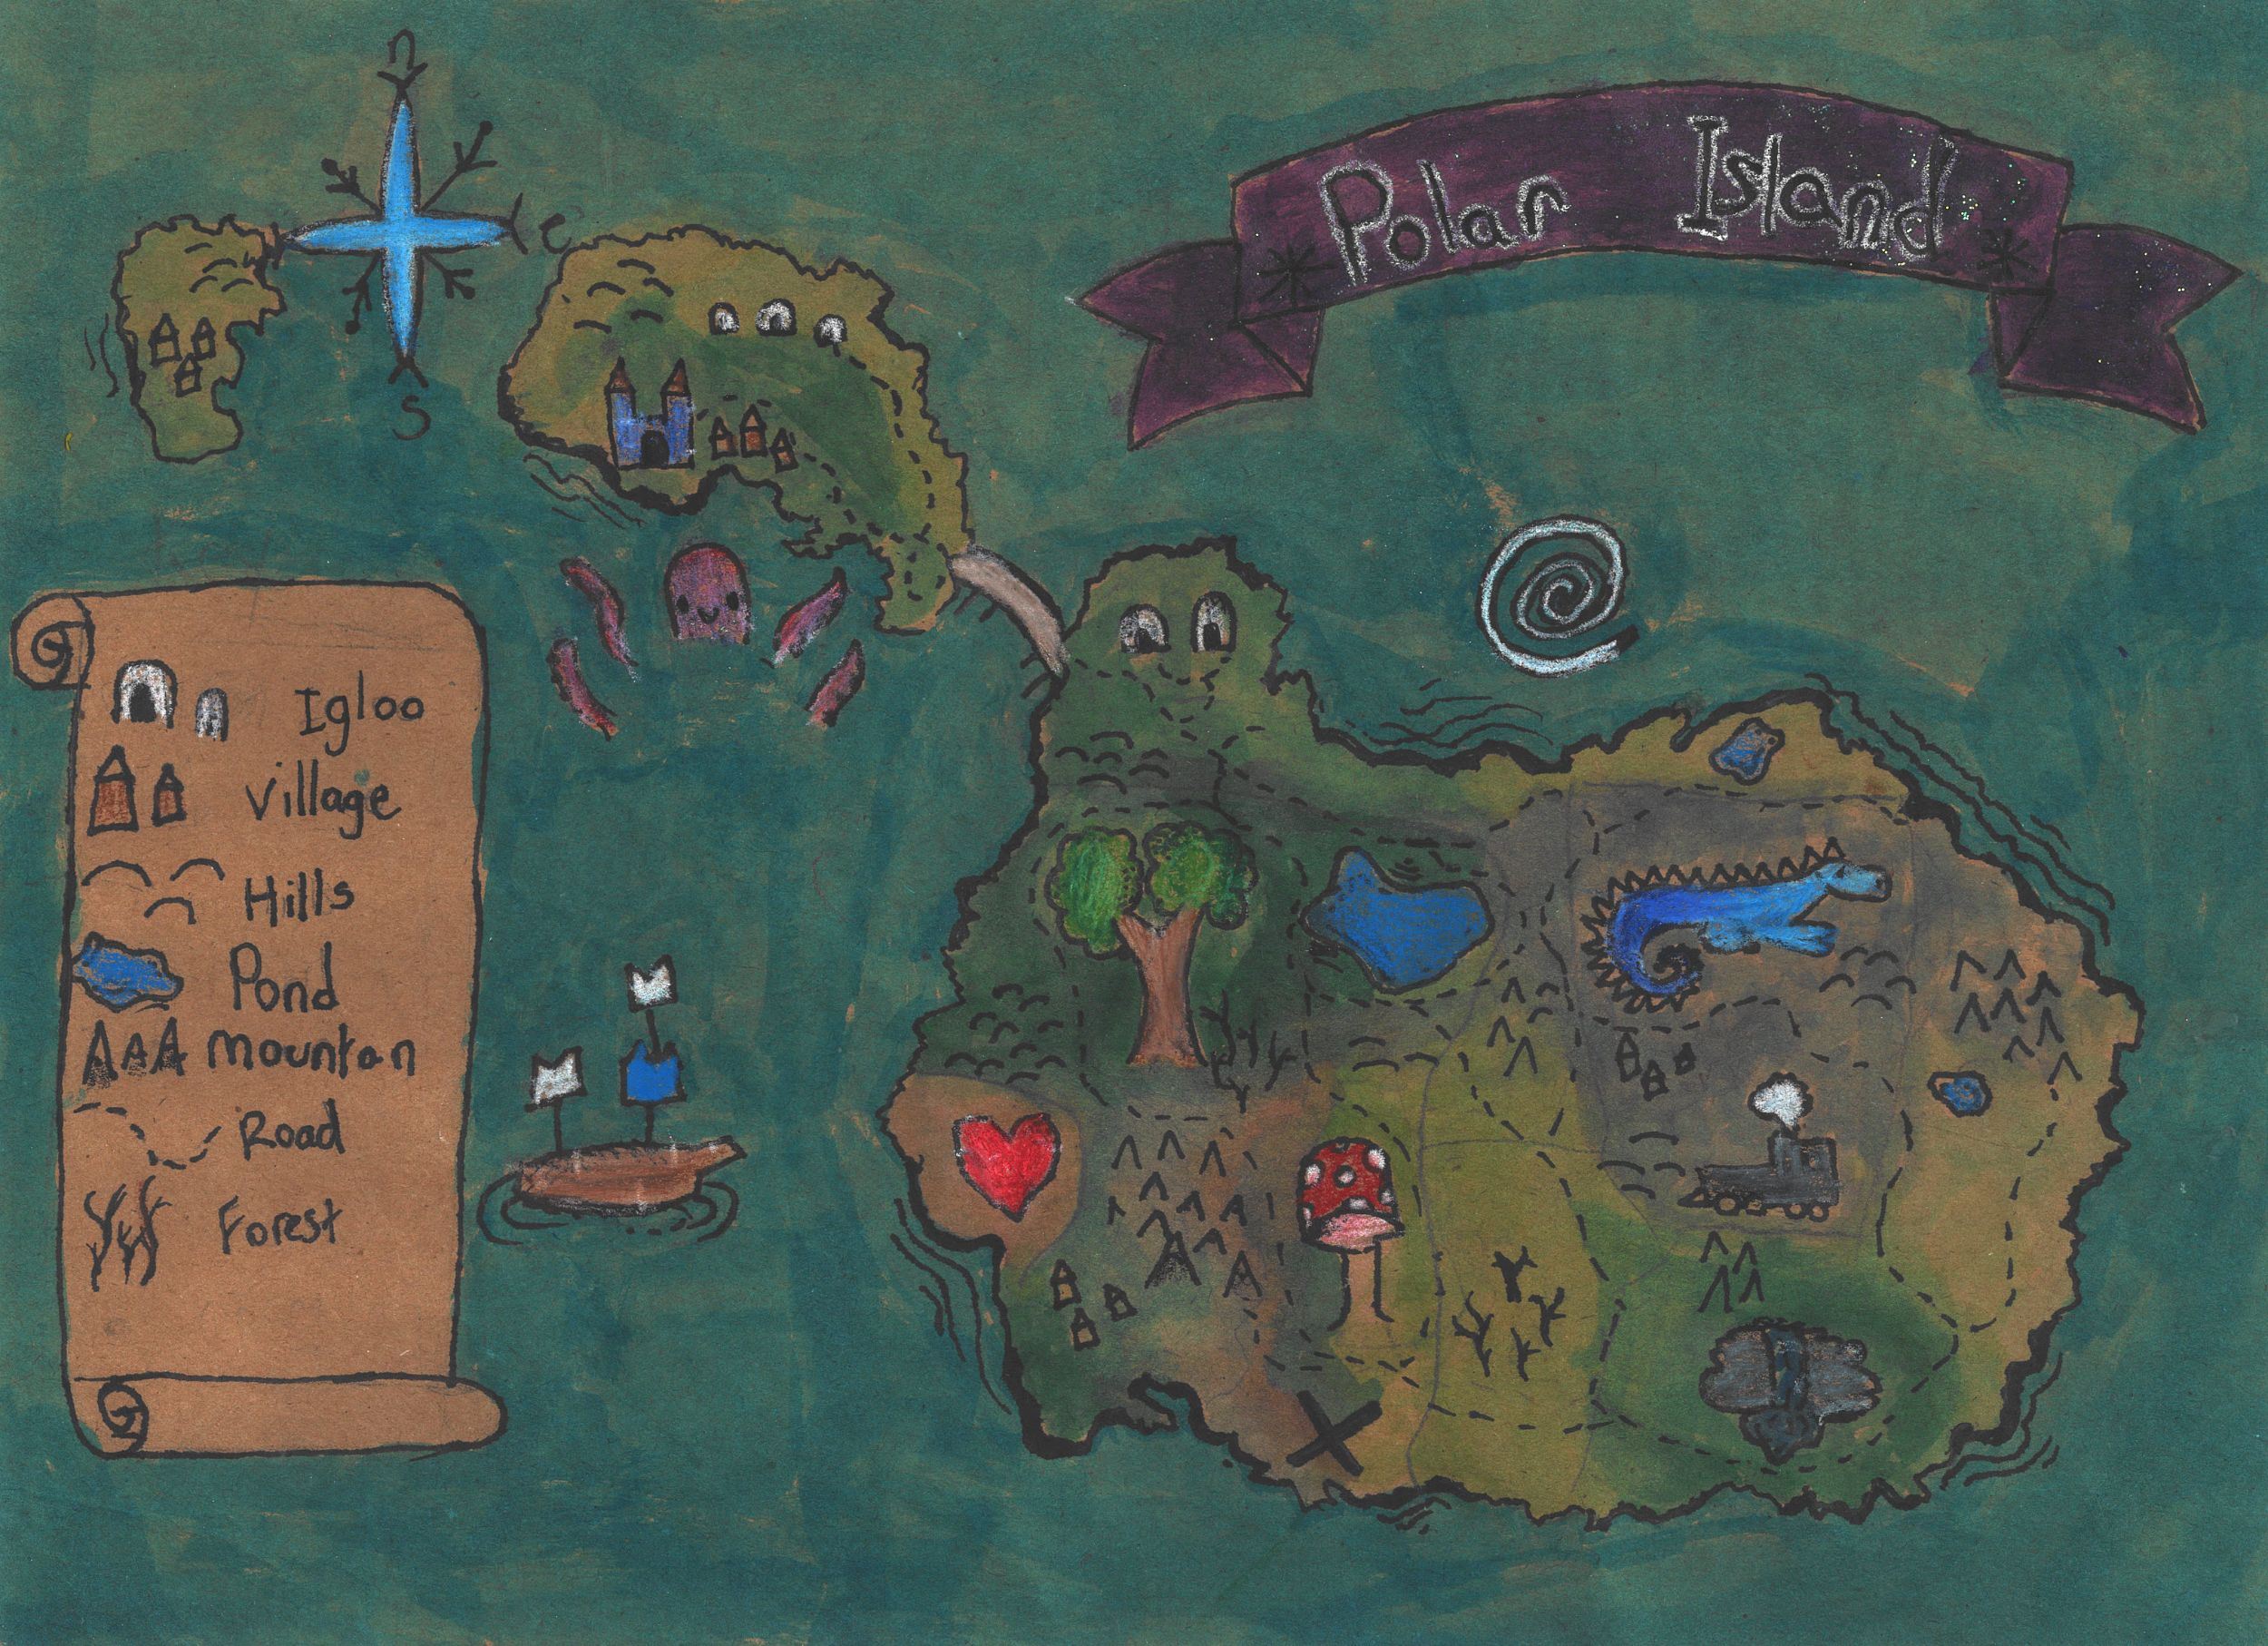 n
e
s
Polar Island
Igloo
Village
Hills
Pond
mountan
Road
Forest